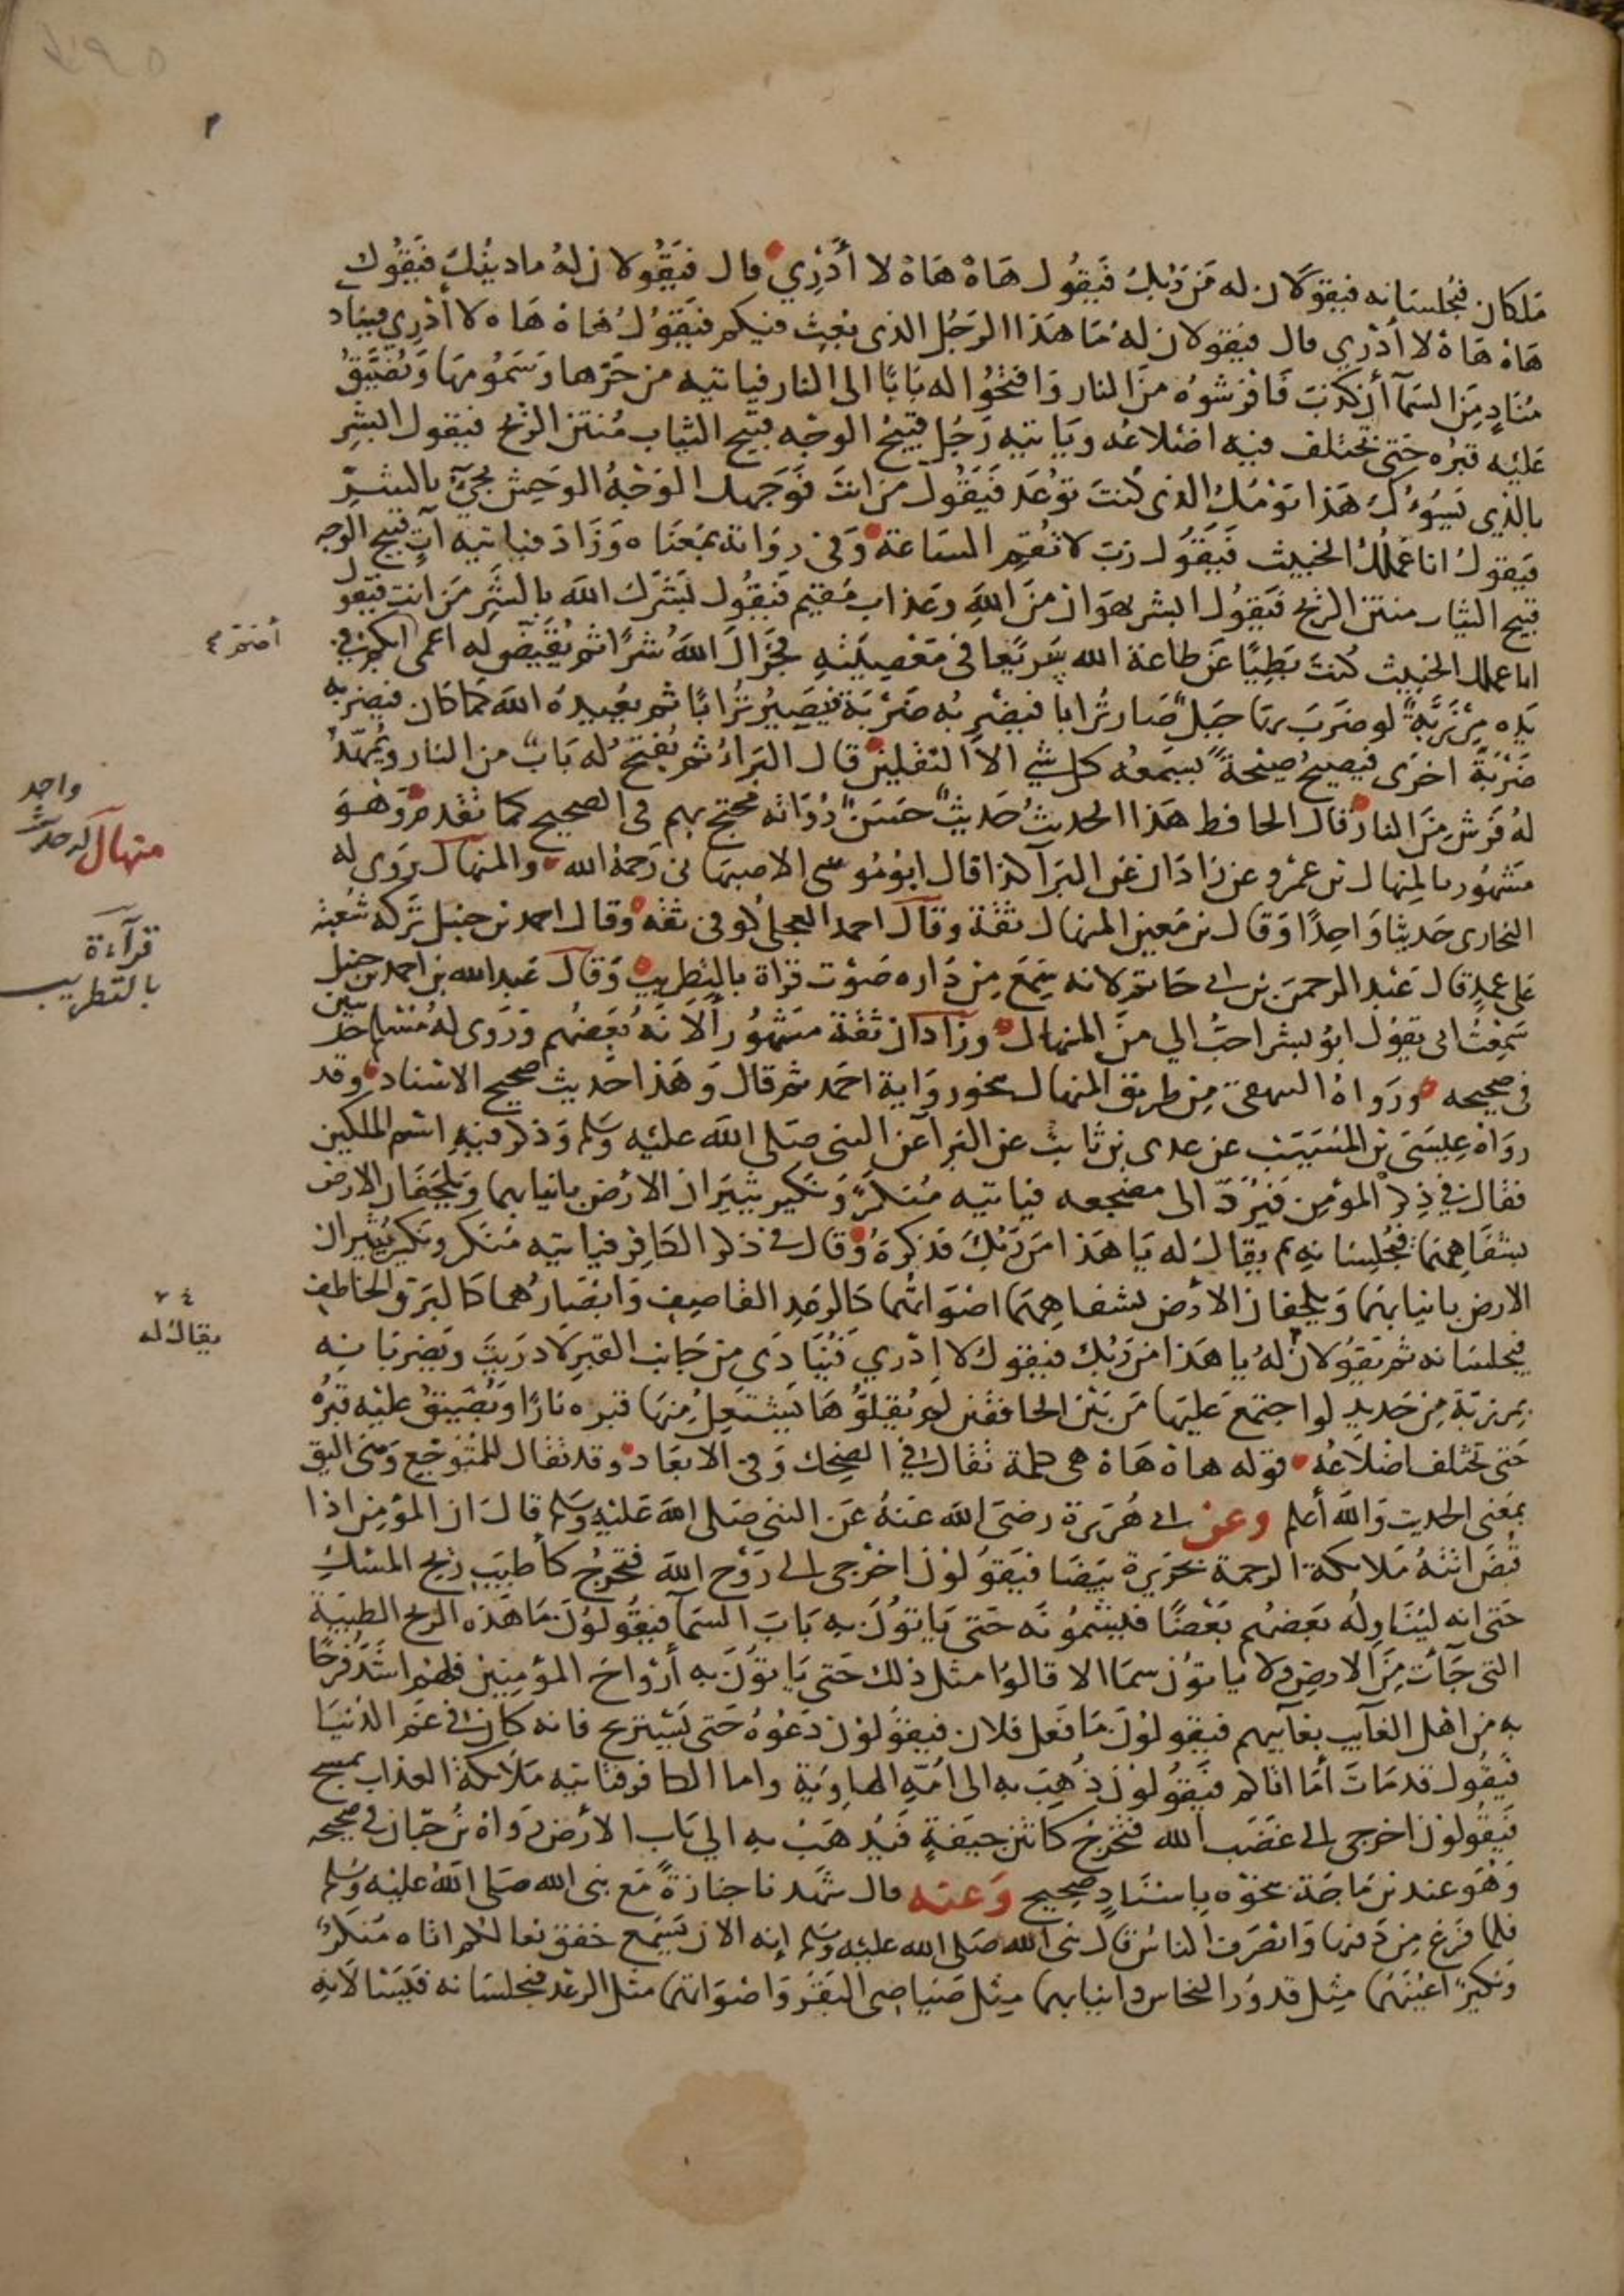 ملكان فيجلسانه فيقولان له من ربك فيقول هاه هاه لا أدري قال فيقولان له ما دينك فيقول
هاه هاه لا أدري قال فيقولان له ما هذا الرجل الذي بعث فيكم فيقول هاه هاه لا أدري فيناد
مناد من السمآ أن كذب فافرشوه من النار وافتحوا له بابا الى النار فياتيه من حرها وسمومها ويضيق
عليه قبره حتى تختلف فيه اضلاعه وياتيه رجل قبيح الوجه قبيح الثياب منتن الريح فيقول ابشر
بالذي يسوءك هذا يومك الذي كنت توعد فيقول من انت فوجهك الوجه الوحش يجئ بالشر
فيقول انا عملك الخبيث فيقول رب لا تقم الساعة وفي رواية بمعناه وزاد فياتيه آت قبيح الوجه
قبيح الثياب منتن الريح فيقول ابشر بهوان من الله وعذاب مقيم فيقول بشرك الله بالشر من انت فيقول
انا عملك الخبيث كنت بطيا عن طاعة الله سريعا في معصيته فجزاك الله شرا ثم يقيض له اعمى ابكم في
يده مرزبة لو ضرب بها جبل صار ترابا فيضربه ضربة فيصير ترابا ثم يعيده الله كما كان فيضربه
ضربة اخرى فيصيح صيحة يسمعه كل شي الا الثقلين قال البراء ثم يفتح له باب من النار ويمهد
له فرش من النار قال الحافظ هذا الحديث حديث حسن رواته محتج بهم في الصحيح كما تقدم وهو
مشهور بالمنهال بن عمرو عن زاذان عن البرآ كذا قال ابو موسى الاصبهاني رحمة الله والمنهال روى له
البخاري حديثا واحدا وقال بن معين المنهال ثقة وقال احمد العجلي كوفي ثقه وقال احمد بن حنبل تركه شعبة
على عمد قال عبد الرحمن بن ابي حاتم لانه سمع من داره صوت قراة بالتطريب وقال عبد الله بن احمد بن حنبل
سمعت ابي يقول ابو بشر احب الي من المنهال وزاذان ثقة مشهور ألانه بعضهم وروى له مسلم حديثين
في صحيحه ورواه البيهقي من طريق المنهال بنحو رواية احمد ثم قال وهذا حديث صحيح الاسناد وقد
رواه عيسى بن المسيب عن عدي بن ثابت عن البرآ عن النبي صلى الله عليه وسلم وذكر فيه اسم الملكين
فقال في ذكر المؤمن فيرد الى مضجعه فياتيه منكر ونكير يثيران الارض بانيابهما ويلجفان الارض
بشفاههما فيجلسانه ثم يقال له يا هذا من ربك فذكره وقال في ذكر الكافر فياتيه منكر ونكير يثيران
الارض بانيابهما ويلجفان الارض بشفاههما اصواتهما كالرعد القاصف وابصارهما كالبرق الخاطف
فيجلسانه ثم يقولان له يا هذا من ربك فيقول لا ادري فينادى من جانب القبر لا دريت ويضربانه
بمرزبة من حديد لو اجتمع عليها من بين الخافقين لم يقلوها يشتعل منها قبره نارا ويضيق عليه قبره
حتى تختلف اضلاعه قوله هاه هاه هي كلمة تقال في الضحك وفي الايعاد وقد تقال للتوجع وهي اليق
بمعنى الحديث والله أعلم وعن ابي هريرة رضي الله عنه عن النبي صلى الله عليه وسلم قال ان المؤمن اذا
قبض اتته ملائكة الرحمة بحريرة بيضا فيقولون اخرجي الى روح الله فتخرج كأطيب ريح المسك
حتى انه ليناوله بعضهم بعضا فيشمونه حتى ياتون به باب السمآ فيقولون ما هذه الريح الطيبة
التي جآت من الارض ولا ياتون سما الا قالوا مثل ذلك حتى ياتون به أرواح المؤمنين فلهم اشد فرحا
به من اهل الغايب بغآيبهم فيقولون ما فعل فلان فيقولون دعوه حتى يستريح فانه كان في غم الدنيا
فيقول قد مات أما اتاكم فيقولون ذهب به الى امه الهاوية واما الكافر فتاتيه ملائكة العذاب بمسح
فيقولون اخرجي الى غضب الله فتخرج كانتن جيفة فيذهب به الى باب الارض رواه بن حبان في صحيحه
وهو عند بن ماجة بنحوه باسناد صحيح وعنه قال شهدنا جنازة مع نبي الله صلى الله عليه وسلم
فلما فرغ من دفنها وانصرف الناس قال نبي الله صلى الله عليه وسلم إنه الان يسمع خفق نعالكم اتاه منكر
ونكير اعينهما مثل قدور النحاس وانيابهما مثل صياصي البقر واصواتهما مثل الرعد فيجلسانه فيسالانه
واحد
منهال له حديث
قرآءة
بالتطريب
يقال له